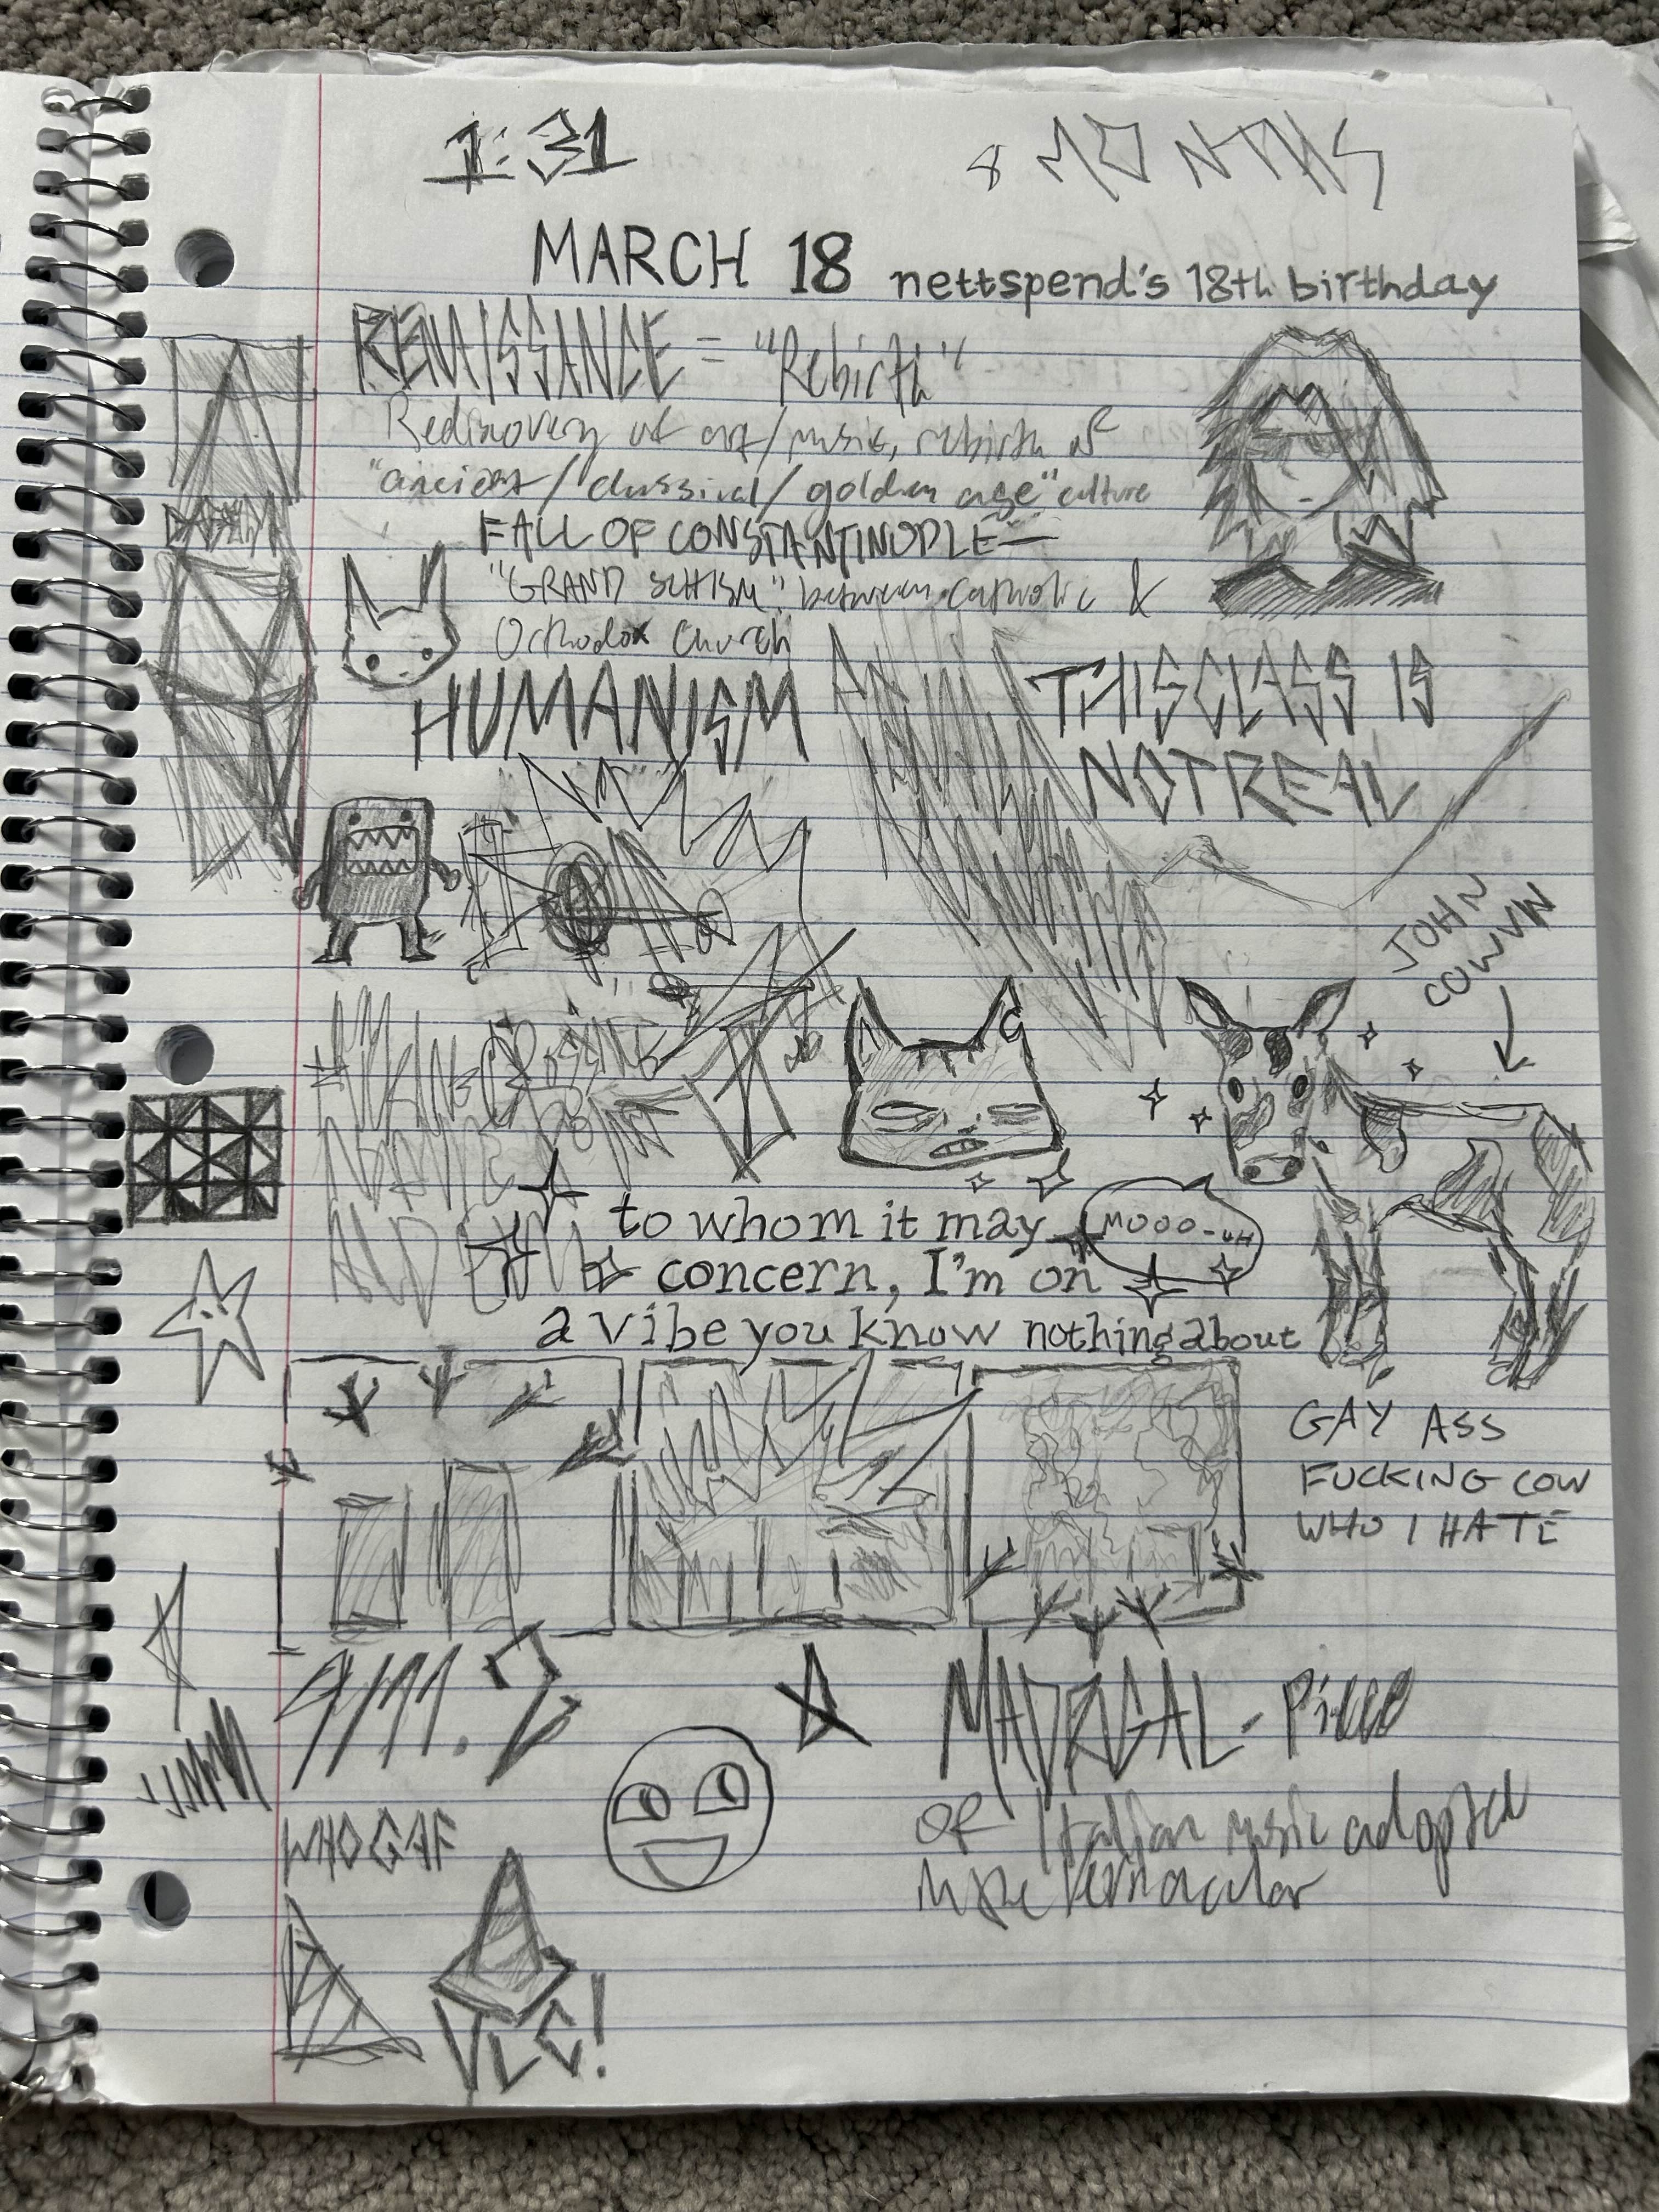 1:31
8 MONTHS
MARCH 18 nettspend's 18th birthday
RENAISSANCE = "Rebirth"
Rediscovery of art/music, rebirth of
"ancient/classical/golden age" culture
FALL OF CONSTANTINOPLE—
"GRAND SCHISM" between Catholic &
Orthodox Church
HUMANISM
THIS CLASS IS
NOT REAL
JOHN
COWVIN
to whom it may
concern, I'm on
a vibe you know nothing about
MOOO-UH
GAY ASS
FUCKING COW
WHO I HATE
9/11.2
WHO GAF
MADRIGAL - Piece
OF Italian music adopted
in the vernacular
VLC!